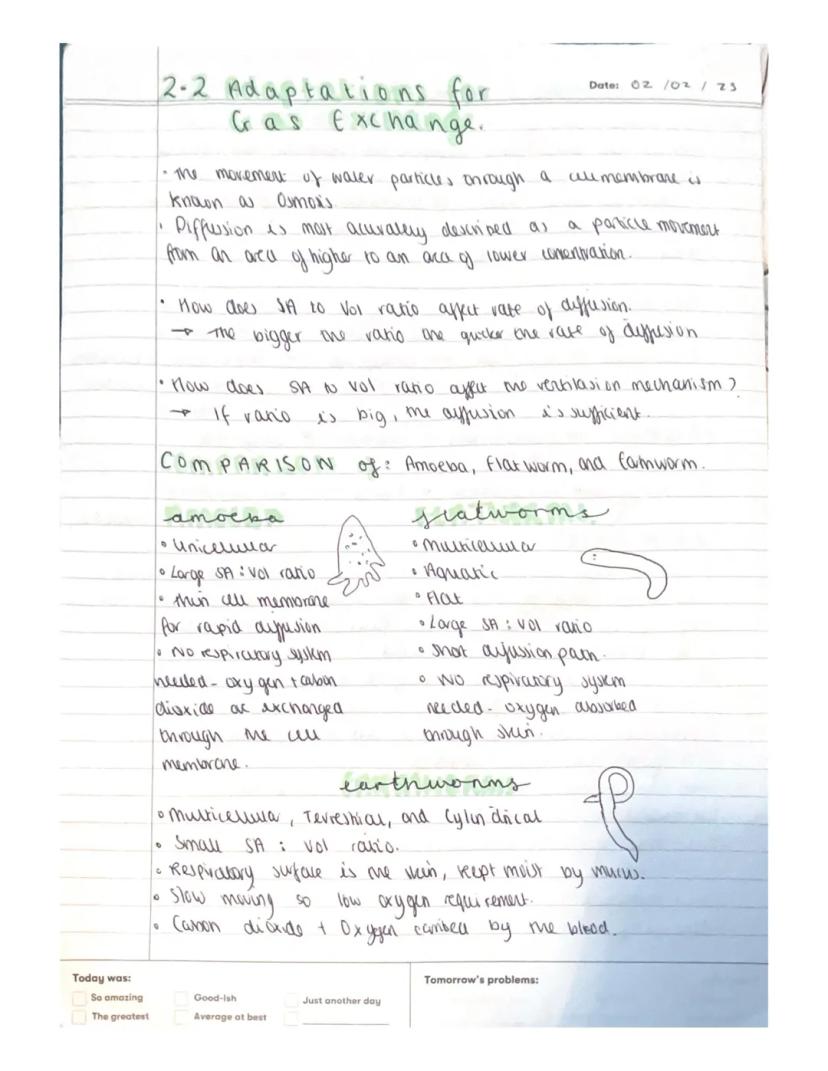 2.2 Adaptations for
Gas Exchange.
Date: 02 / 02 / 23
• The movement of water particles through a cell membrane is
known as Osmosis.
• Diffusion is most accurately described as a particle movement
from an area of higher to an area of lower concentration.
• How does SA to Vol ratio affect rate of diffusion.
→ The bigger the ratio the quicker the rate of diffusion
• How does SA to Vol ratio affect the ventilation mechanism?
→ If ratio is big, the diffusion is sufficient.
COMPARISON of: Amoeba, Flatworm, and Earthworm.
amoeba
• Unicellular
• Large SA : Vol ratio
• Thin cell membrane
for rapid diffusion
• No respiratory system
needed - oxygen + carbon
dioxide are exchanged
through the cell
membrane.
flatworms.
• Multicellular
• Aquatic
• Flat
• Large SA : Vol ratio
• Short diffusion path.
• No respiratory system
needed - oxygen absorbed
through skin.
earthworms
• Multicellular, Terrestrial, and Cylindrical
• Small SA : Vol ratio.
• Respiratory surface is the skin, kept moist by mucus.
• Slow moving so low oxygen requirement.
• Carbon dioxide + Oxygen carried by the blood.
Today was:
So amazing
Good-ish
Just another day
The greatest
Average at best
Tomorrow's problems: